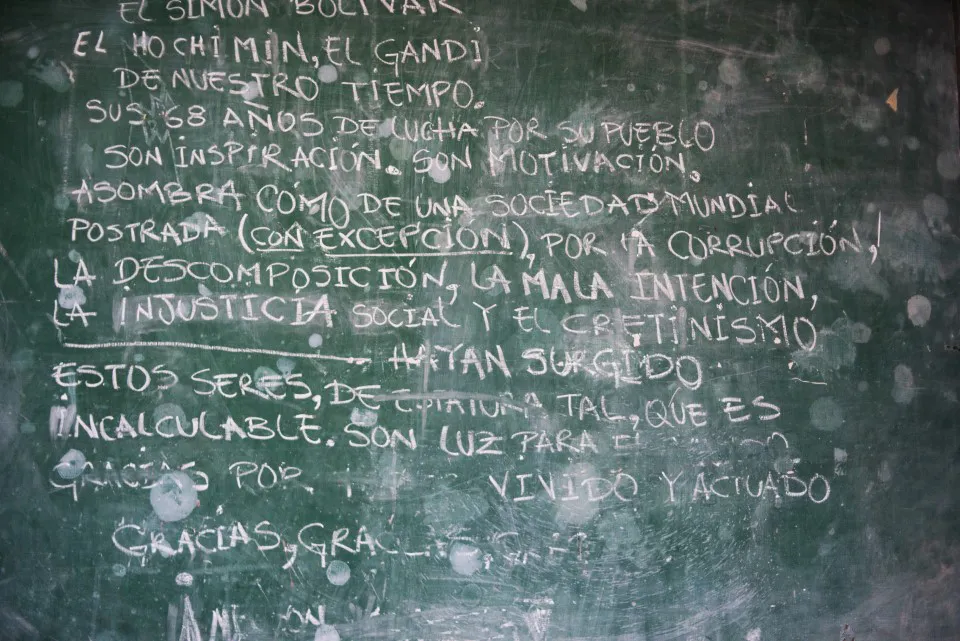 EL SIMÓN BOLÍVAR
EL HO CHI MIN, EL GANDI
DE NUESTRO TIEMPO.
SUS 68 AÑOS DE LUCHA POR SU PUEBLO
SON INSPIRACIÓN. SON MOTIVACIÓN.
ASOMBRA CÓMO DE UNA SOCIEDAD MUNDIAL
POSTRADA (CON EXCEPCIÓN), POR LA CORRUPCIÓN,
LA DESCOMPOSICIÓN, LA MALA INTENCIÓN,
LA INJUSTICIA SOCIAL Y EL CRETINISMO
HAYAN SURGIDO
ESTOS SERES, DE ESTATURA TAL, QUE ES
INCALCULABLE. SON LUZ PARA EL
GRACIAS POR VIVIDO Y ACTUADO
GRACIAS, GRACIAS